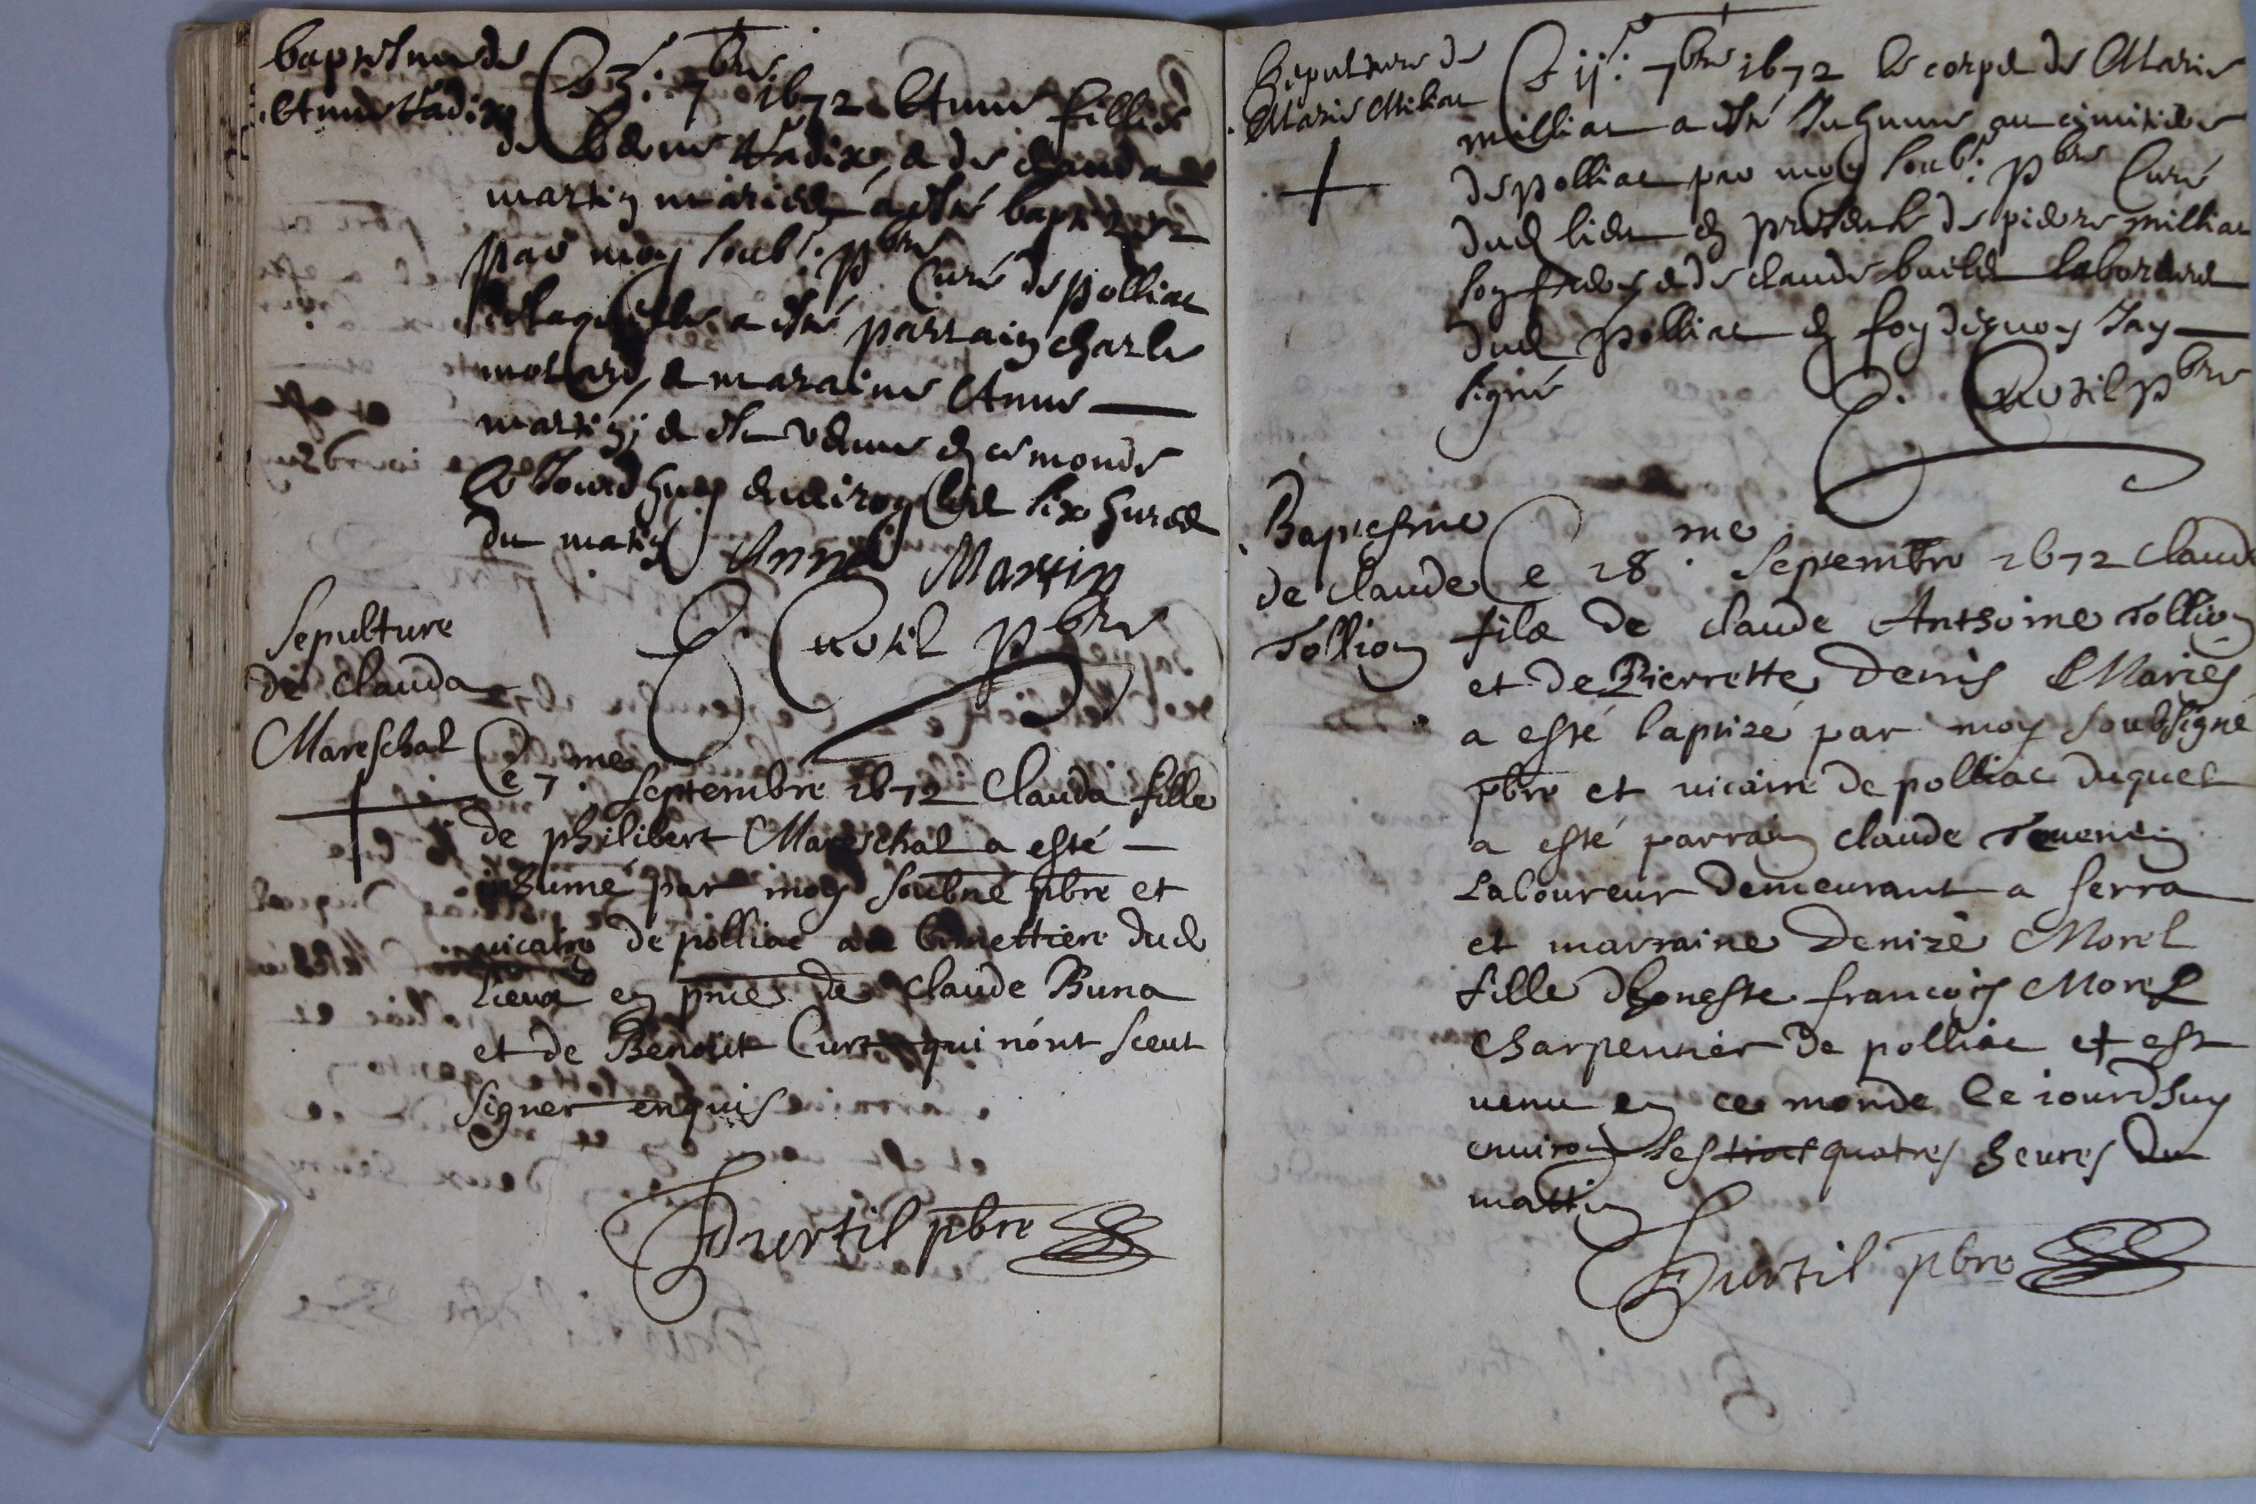 baptesme de
Anne Vadix
Ce 3.e 7bre 1672 Anne fillie
de Vadix, & de clauda
martin mariés a esté baptizée
par moy soubs. pbre Curé de polliac
de laquelle a esté parrain charle
& maraine Anne
martin; & est venue en ce monde
ce Jourdhuy environ les six hures
du matin Anne Martin
Curtil pbre
Sepulture
de Clauda
Mareschal
Ce 7.me Septembre 1672 Clauda fille
de philibert Mareschal a esté
inhumé par moy soubné pbre et
vicaire de polliac au Cimettiere dud
Lieux en pnces de Claude Buna
et de Benoit Curt qui n'ont sceut
signer enquis
Durtil pbre
Sepulture de
Marie Miliac
Ce 11.e 7bre 1672 le corps de Marie
milliac a esté Inhume au cimitiere
de polliac par moy soubs. pbre Curé
dud lieu en presence de piere milliac
son frere & de claude buclet laboreurs
dud polliac en foy dequoy Jay
signé
Curtil pbre
Baptesme
de Claude
Tollion
Ce 28.me Septembre 1672 Claude
fils de Claude Anthoine Tollion
et de Pierrette Denis Mariés
a esté baptizé par moy soubsigné
pbre et vicaire de polliac duquel
a esté parrain Claude Tevenin
Laboureur Demeurant a Serra
et marraine Denize Morel
fille dhoneste francois Morel
Charpentier de polliac et est
venu en ce monde le iourdhuy
environ les trois quatres heures du
mattin
Durtil pbre